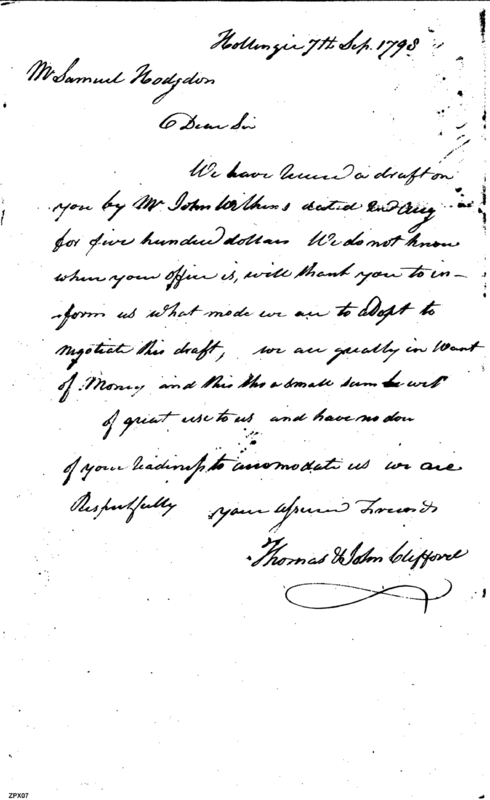 Hollingie 7th Sep. 1798
Mr Samuel Hodgdon
Dear Sir
We have a draft on
you by Mr John Wilkins dated 2nd Aug
for five hundred dollars We do not know
when your office is, will thank you to in-
form us what mode we are to adopt to
negotiate this draft, we are greatly in want
of Money and this tho a small sum be
of great use to us and have no dou
of your readiness to acomodate us we are
Respectfully your Friends
Thomas & John Clifford
ZPX07